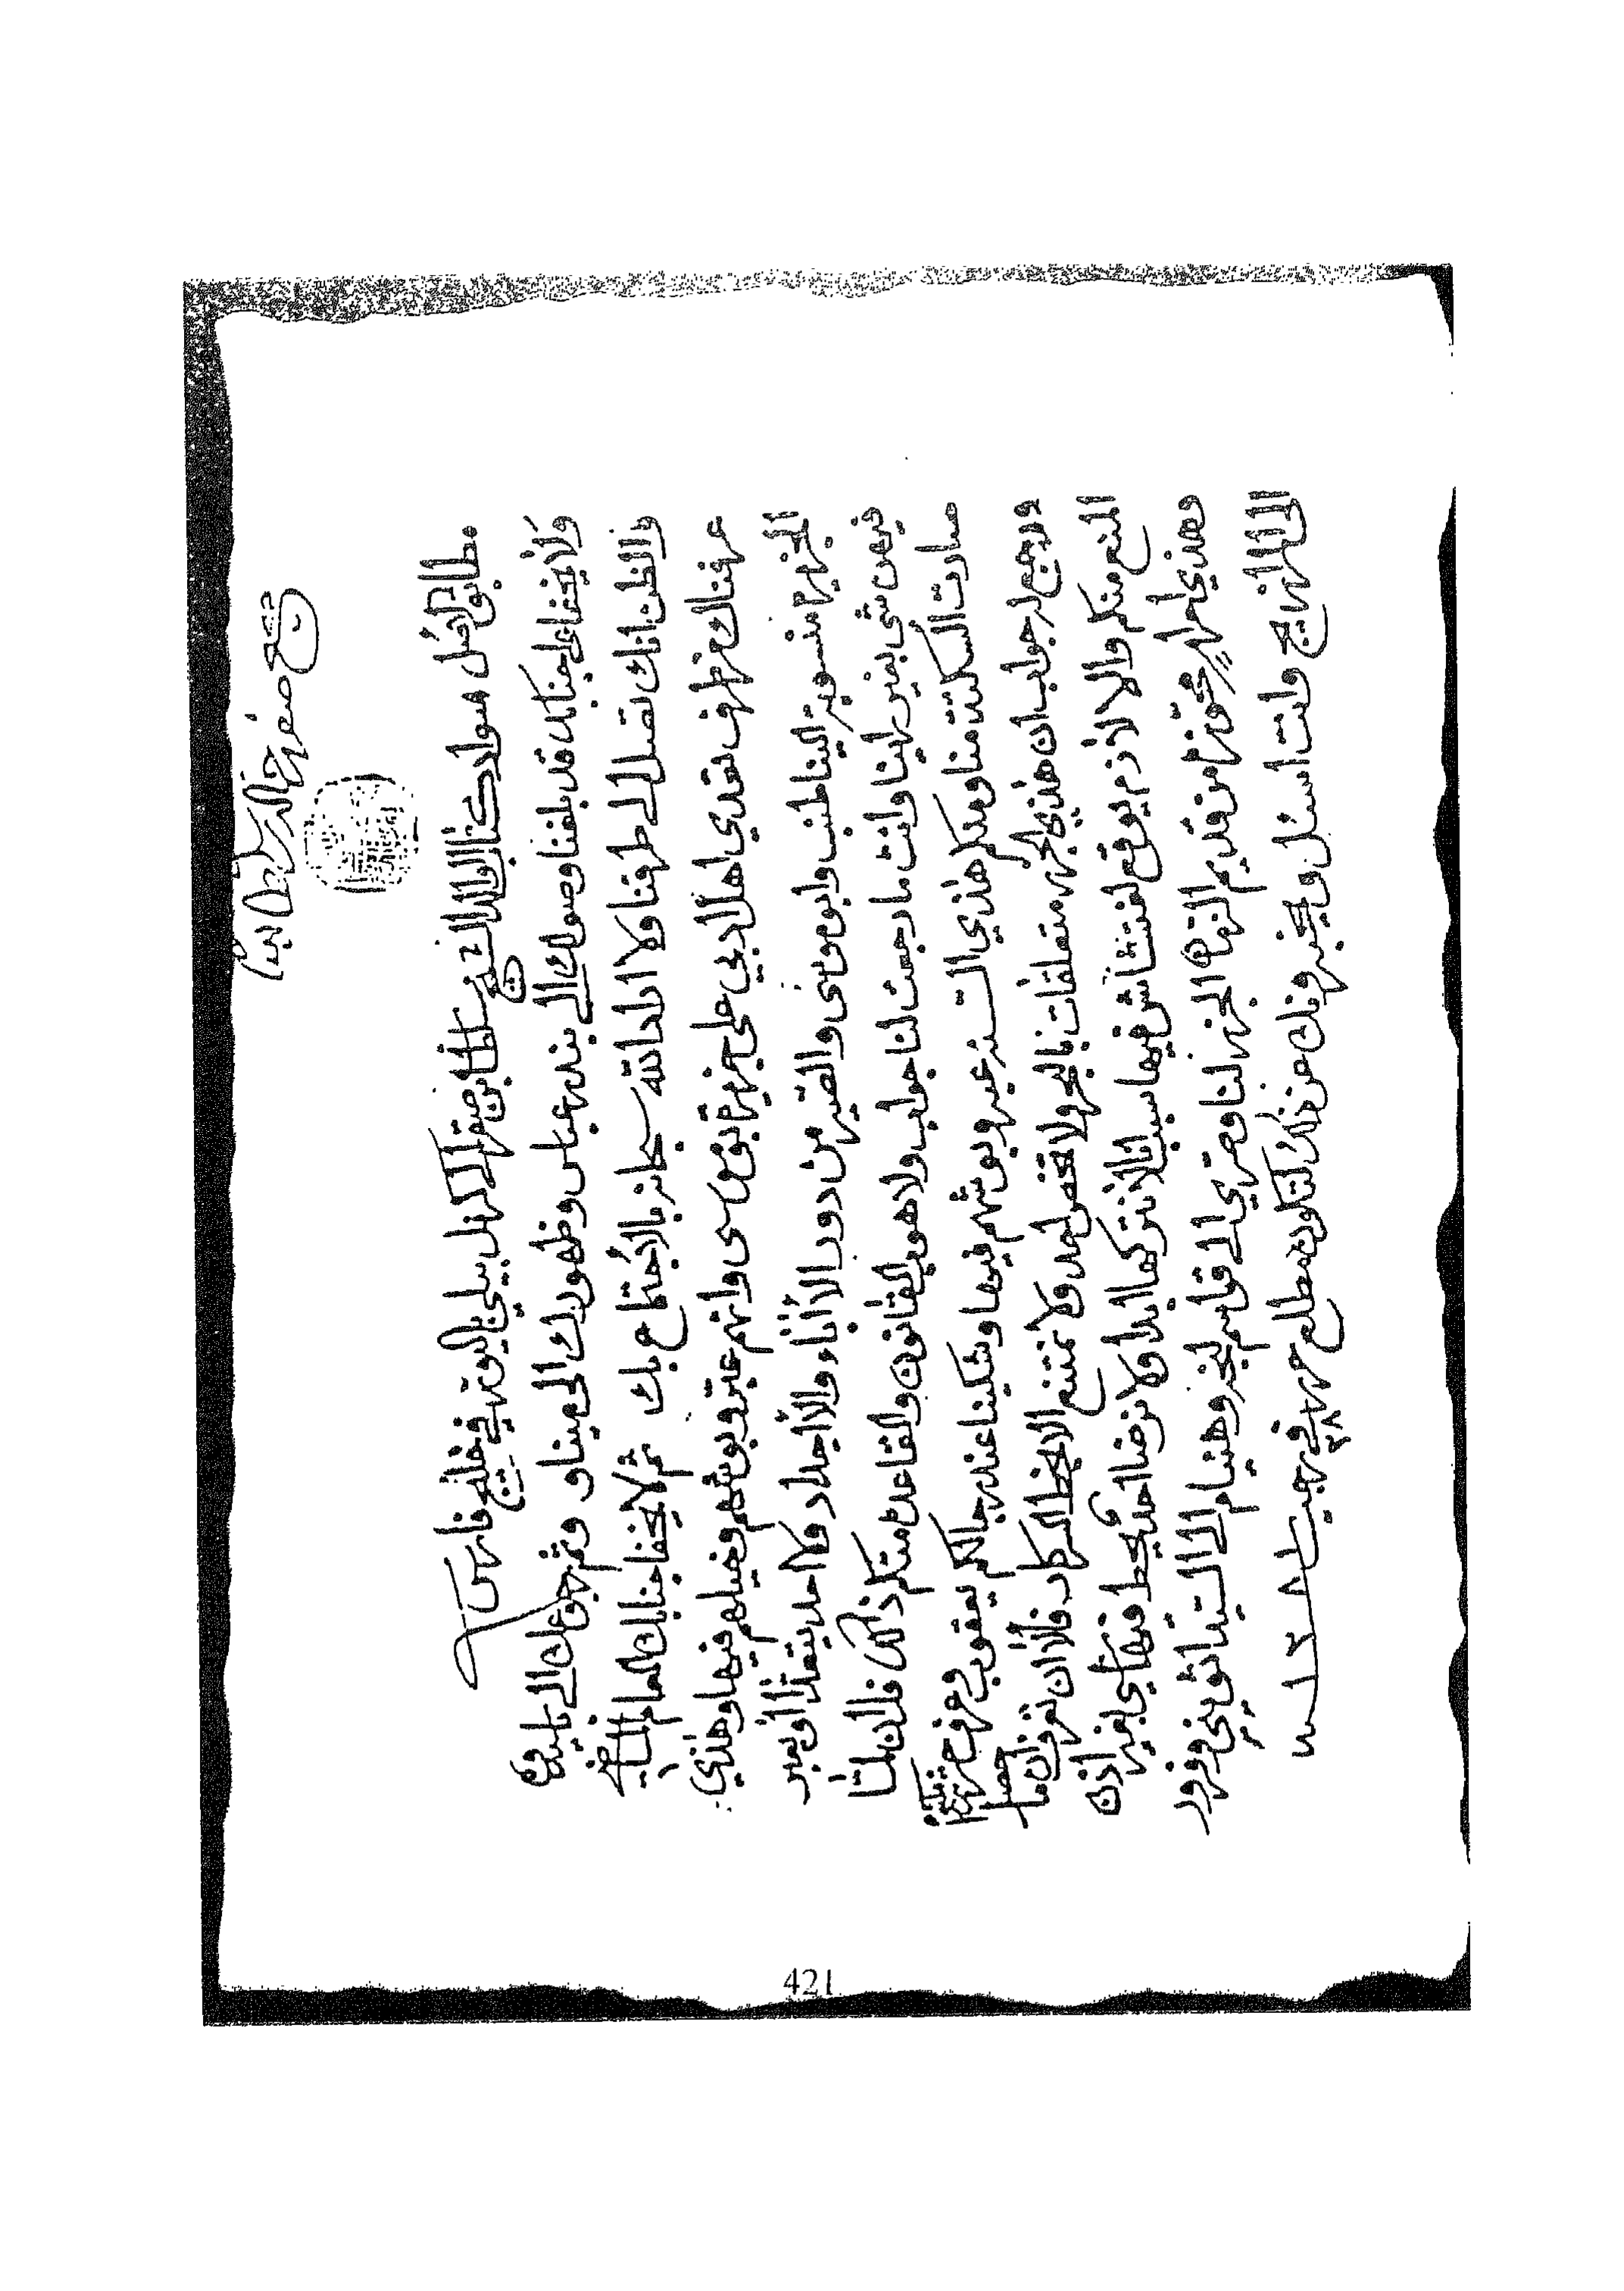 الشيخ صقر بن خالد بن سلطان
مطابق الاصل سواد كتاب الوالد الشيخ سلطان بن صقر الى كرنل بيلي باليوز في خليج فارس
ولا يخفا على جنابك قد بلغنا وصولك الى بندر عباس وظهورك الى ميناو وثم رجوعك الى باسيدوه
والظن انك تصل الى طرفنا ولا اراد الله سبحانه بالاجتماع بك ثم لا يخفا جنابك العام الماضي
عرفناك عن طرف تعدي اهل دبي على جزيرة بوموسى وانهم عبروا بوشهم وخيلهم فيها وهذي
الجزيره منسوبة الينا طنب وابوموسى والصير من دون الاباء والاجداد ولا احد يتعدا او يعبر
فيهن شي بغير راينا وانت ما رجعت لنا جواب ولا هو القانون والقاعده منكم ذالك فالان لما
صارت السكنه منا ومنكم هذي السنه عبروا بوشهم فيها وشكينا عند رجالكم يعقوب وعرف حضرتكم
ورجع له جواب ان هذي الجزر متعلقات بالبحر ولا تخص لحد ولا نمتنع الا بخط السركار فالان تعرف ان ما حصل
المنع منكم والا لازم يوقع لفتشاش فيها سبب انا لا نتركها ابدا ولا نرضا احد يحط فيها شي بغير اذن
وهذي امارة محتومة من قديم الزمان الجزر لنا وصري الى قواسم لنجه وهنيام الى السيد ثويني وفرور
الى المرازيج وانت اسئل ويخبرونك عن ذلك لتكون مطلع حرر في ٢٨ رجب
سنة ١٢٨١
421